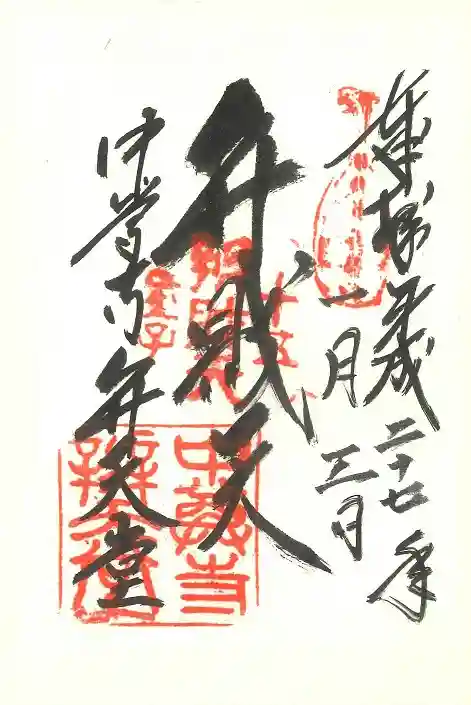 奉拝 平成二十七年
一月三日
弁財天
中尊寺 弁天堂
中尊寺
辯天堂